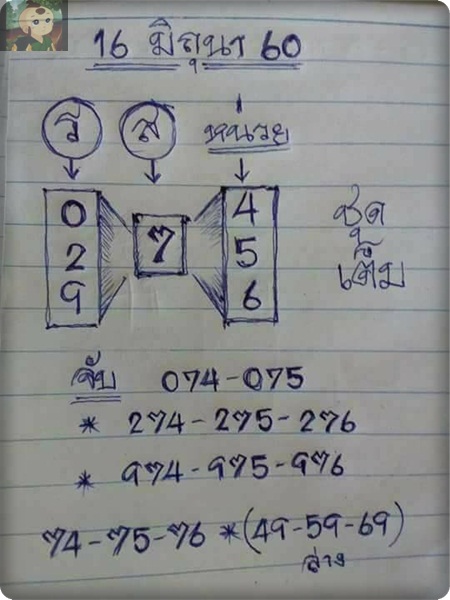 16 มิถุนา 60
ร ส หน่วย
0 4
7
2 5
9 6
ชุด
เต็ม
จับ 074-075
* 274-275-276
* 974-975-976
74-75-76 *(49-59-69)
ล่าง